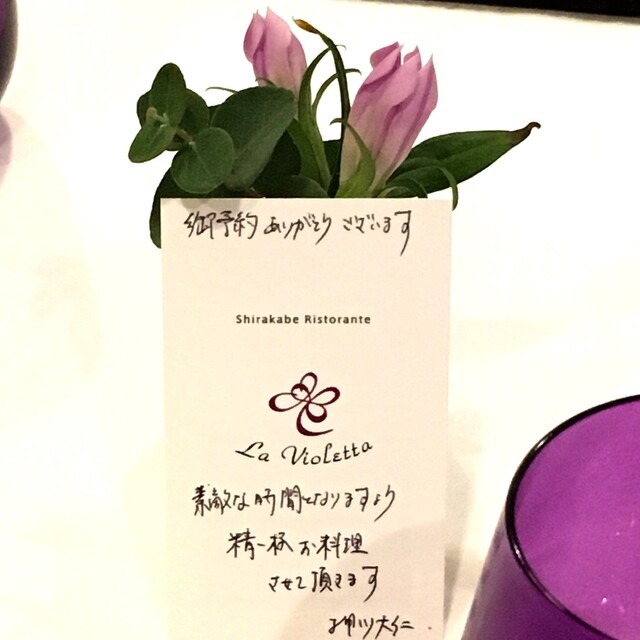 御予約ありがとうございます
Shirakabe Ristorante
La Violetta
素敵な時間となりますよう
精一杯お料理
させて頂きます